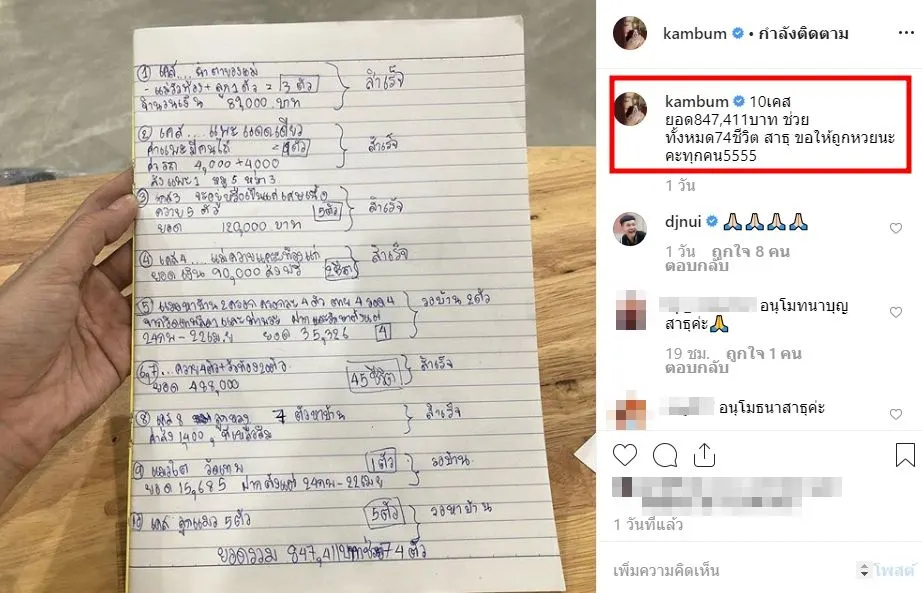 ① เคส... น้ำตาของแม่
- แม่วัวท้อง + ลูก 1 ตัว = 3 ตัว
จำนวนเงิน 83,000 บาท
สำเร็จ
② เคส.... แพะโดดเดี่ยว
ค่าแพะมีคนไถ่ = 9ตัว
ค่ารถ 4,000+4000
สำเร็จ
③ เคส3 จะอยู่หรือเป็นแค่เศษเนื้อ
ควาย 5 ตัว 5ตัว
ยอด 120,000 บาท
สำเร็จ
④ เคส4.. แม่ควายและท้องแก่
ยอดเงิน 90,000 2ชีวิต
สำเร็จ
⑤ 4
24กพ-22เมย ยอด 35,326
รอบ้าน 2ตัว
6,7 ... ควาย4ตัว+วัวท้อง20ตัว
ยอด 488,000 45ชีวิต
สำเร็จ
⑧ เคส 8 ลูกหมา 7 ตัวหาบ้าน
ค่าส่ง 1,400
สำเร็จ
⑨ แมวโต วัดเทพ 1ตัว
ยอด 15,685 ฝากตั้งแต่ 24กพ-22เมย
รอบ้าน
10 เคส ลูกแมว 5ตัว 5ตัว
รอหาบ้าน
ยอดรวม 847,411บาท 74 ตัว
kambum • กำลังติดตาม
kambum 10เคส
ยอด847,411บาท ช่วย
ทั้งหมด74ชีวิต สาธุ ขอให้ถูกหวยนะ
คะทุกคน5555
1 วัน
djnui 🙏🙏🙏🙏
1 วัน ถูกใจ 8 คน
ตอบกลับ
อนุโมทนาบุญ
สาธุค่ะ🙏
19 ชม. ถูกใจ 1 คน
ตอบกลับ
อนุโมธนาสาธุค่ะ
1 วันที่แล้ว
เพิ่มความคิดเห็น
โพสต์